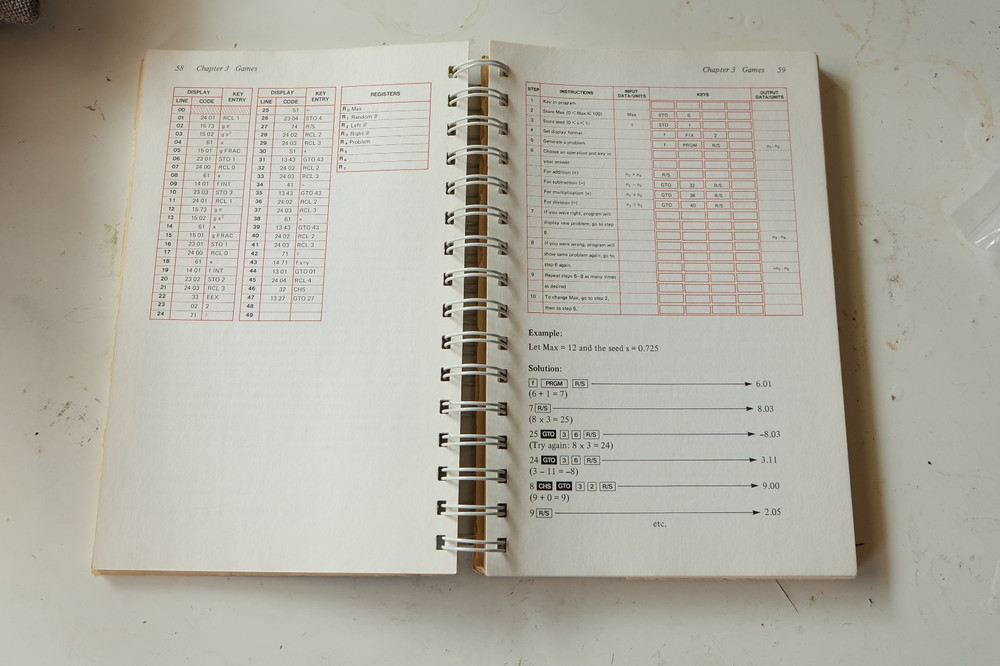 58 Chapter 3 Games
DISPLAY KEY ENTRY DISPLAY KEY ENTRY REGISTERS
LINE CODE LINE CODE
00 25 51 + R0 Max
01 24 01 RCL 1 26 23 04 STO 4 R1 Random #
02 15 73 g π 27 74 R/S R2 Left #
03 15 02 g x² 28 24 02 RCL 2 R3 Right #
04 61 x 29 24 03 RCL 3 R4 Problem
05 15 01 g FRAC 30 51 + R5
06 23 01 STO 1 31 13 43 GTO 43 R6
07 24 00 RCL 0 32 24 02 RCL 2 R7
08 61 x 33 24 03 RCL 3
09 14 01 f INT 34 41 –
10 23 03 STO 3 35 13 43 GTO 43
11 24 01 RCL 1 36 24 02 RCL 2
12 15 73 g π 37 24 03 RCL 3
13 15 02 g x² 38 61 x
14 61 x 39 13 43 GTO 43
15 15 01 g FRAC 40 24 02 RCL 2
16 23 01 STO 1 41 24 03 RCL 3
17 24 00 RCL 0 42 71 ÷
18 61 x 43 14 71 f x=y
19 14 01 f INT 44 13 01 GTO 01
20 23 02 STO 2 45 24 04 RCL 4
21 24 03 RCL 3 46 32 CHS
22 33 EEX 47 13 27 GTO 27
23 02 2 48
24 71 ÷ 49
Chapter 3 Games 59
STEP INSTRUCTIONS INPUT DATA/UNITS KEYS OUTPUT DATA/UNITS
1 Key in program
2 Store Max (0 < Max ≤ 100) Max STO 0
3 Store seed (0 < s < 1) s STO 1
4 Set display format f FIX 2
5 Generate a problem f PRGM R/S n₁.n₂
6 Choose an operation and key in
your answer:
For addition (+) n₁ + n₂ R/S
For subtraction (–) n₁ – n₂ GTO 32 R/S
For multiplication (x) GTO 36 R/S
For division (÷) GTO 40 R/S
7 If you were right, program will
display new problem; go to step
6. n₁.n₂
8 If you were wrong, program will
show same problem again; go to
step 6 again. –n₁.n₂
9 Repeat steps 6–8 as many times
as desired)
10 To change Max, go to step 2,
then to step 5.
Example:
Let Max = 12 and the seed s = 0.725
Solution:
f PRGM R/S 6.01
(6 + 1 = 7)
7 R/S 8.03
(8 x 3 = 25)
25 GTO 3 6 R/S –8.03
(Try again: 8 x 3 = 24)
24 GTO 3 6 R/S 3.11
(3 – 11 = –8)
8 CHS GTO 3 2 R/S 9.00
(9 + 0 = 9)
9 R/S 2.05
etc.